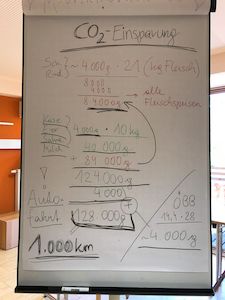 CO₂-Einsparung
Schw.
Rind
~ 4000g · 21 (kg Fleisch)
8000
4000
84000g
→ alle Fleischspeisen
Käse
Eier
Sahne
Milch
4000g · 10kg
40 000g
+ 84 000g
124.000g
4000
128 000g
! Auto-
fahrt
1.000km
ÖBB
14,4 · 28
~ 4.000g